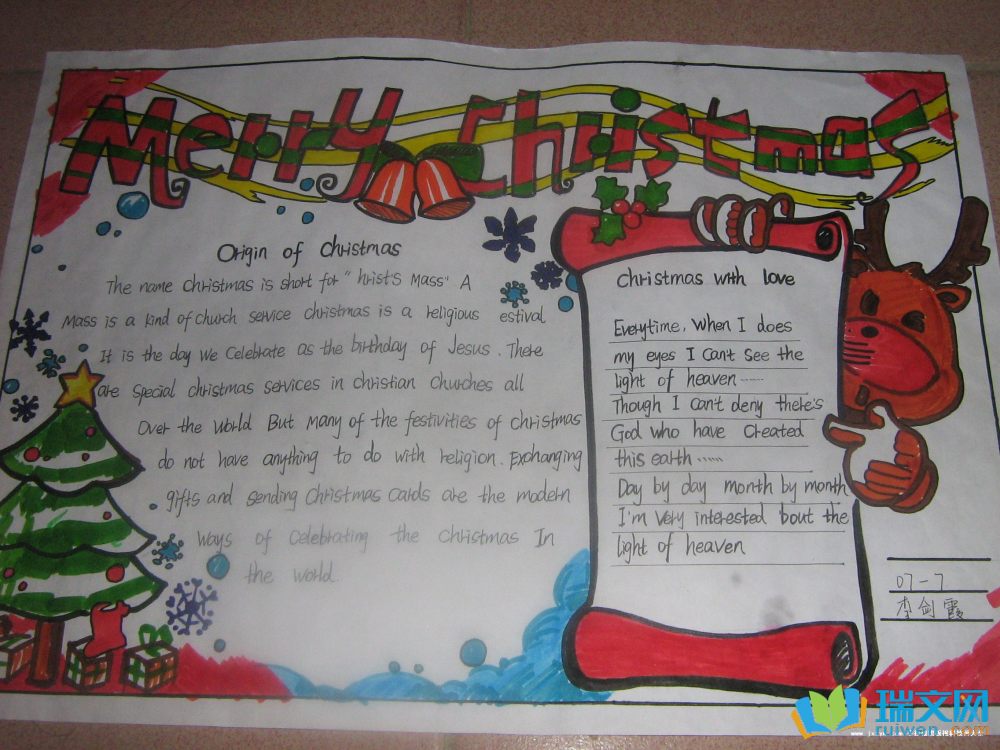 Merry Christmas
Origin of Christmas
The name Christmas is short for "hrist's Mass" A
Mass is a kind of church service christmas is a religious estival
It is the day we celebrate as the birthday of Jesus. There
are special christmas services in christian churches all
Over the world But many of the festivities of christmas
do not have anything to do with religion. Exchanging
gifts and sending christmas cards are the modern
ways of celebrating the christmas In
the world.
Christmas with love
Everytime, when I does
my eyes I can't see the
light of heaven ······
Though I can't deny there's
God who have created
this earth ······
Day by day month by month
I'm very interested 'bout the
light of heaven
07-7
李剑霞
瑞文网
ruiwen.com